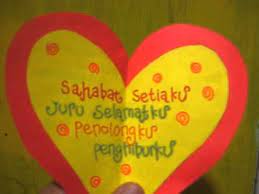 Sahabat Setiaku
Juru Selamatku
Penolongku
penghiburku